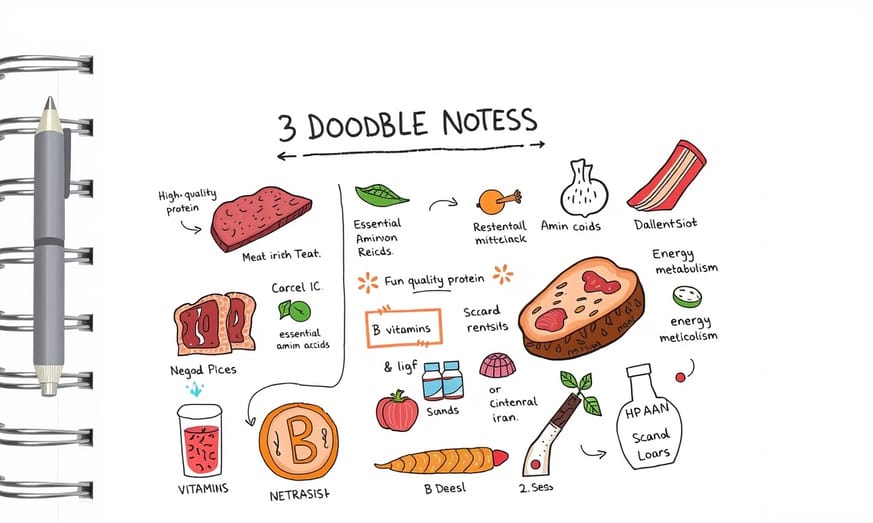 3 DOODBLE NOTESS
High-quality
protein
Meat irich Teat.
Carcel IC.
essential
amin accids
Negad Pices
VITAMINS
B
NETRASISt
Essential
Aminvon
Reicds.
Restentall
mittelnack
Amin coids
DallentSiot
Fun quality protein
B vitamins
Sccard
rentsils
Energy
metabulism
energy
melicolism
& ligf
Sunds
or
Cintenral
iran.
B Deesl
2. Sess
HPAAN
Scand
Loars